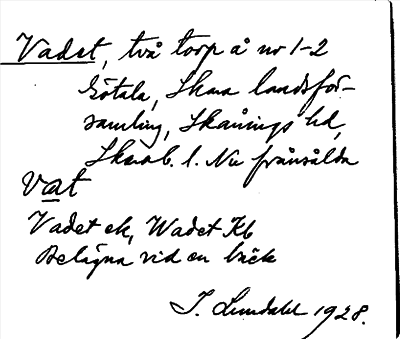 Vadet, två torp å nr 1-2
Götala, Skara landsför-
samling, Skånings hd,
Skarab. l. Nu frånsålda
Vat
Vadet ek, Wadet Kb
Belägna vid en bäck
J. Lundahl 1928.